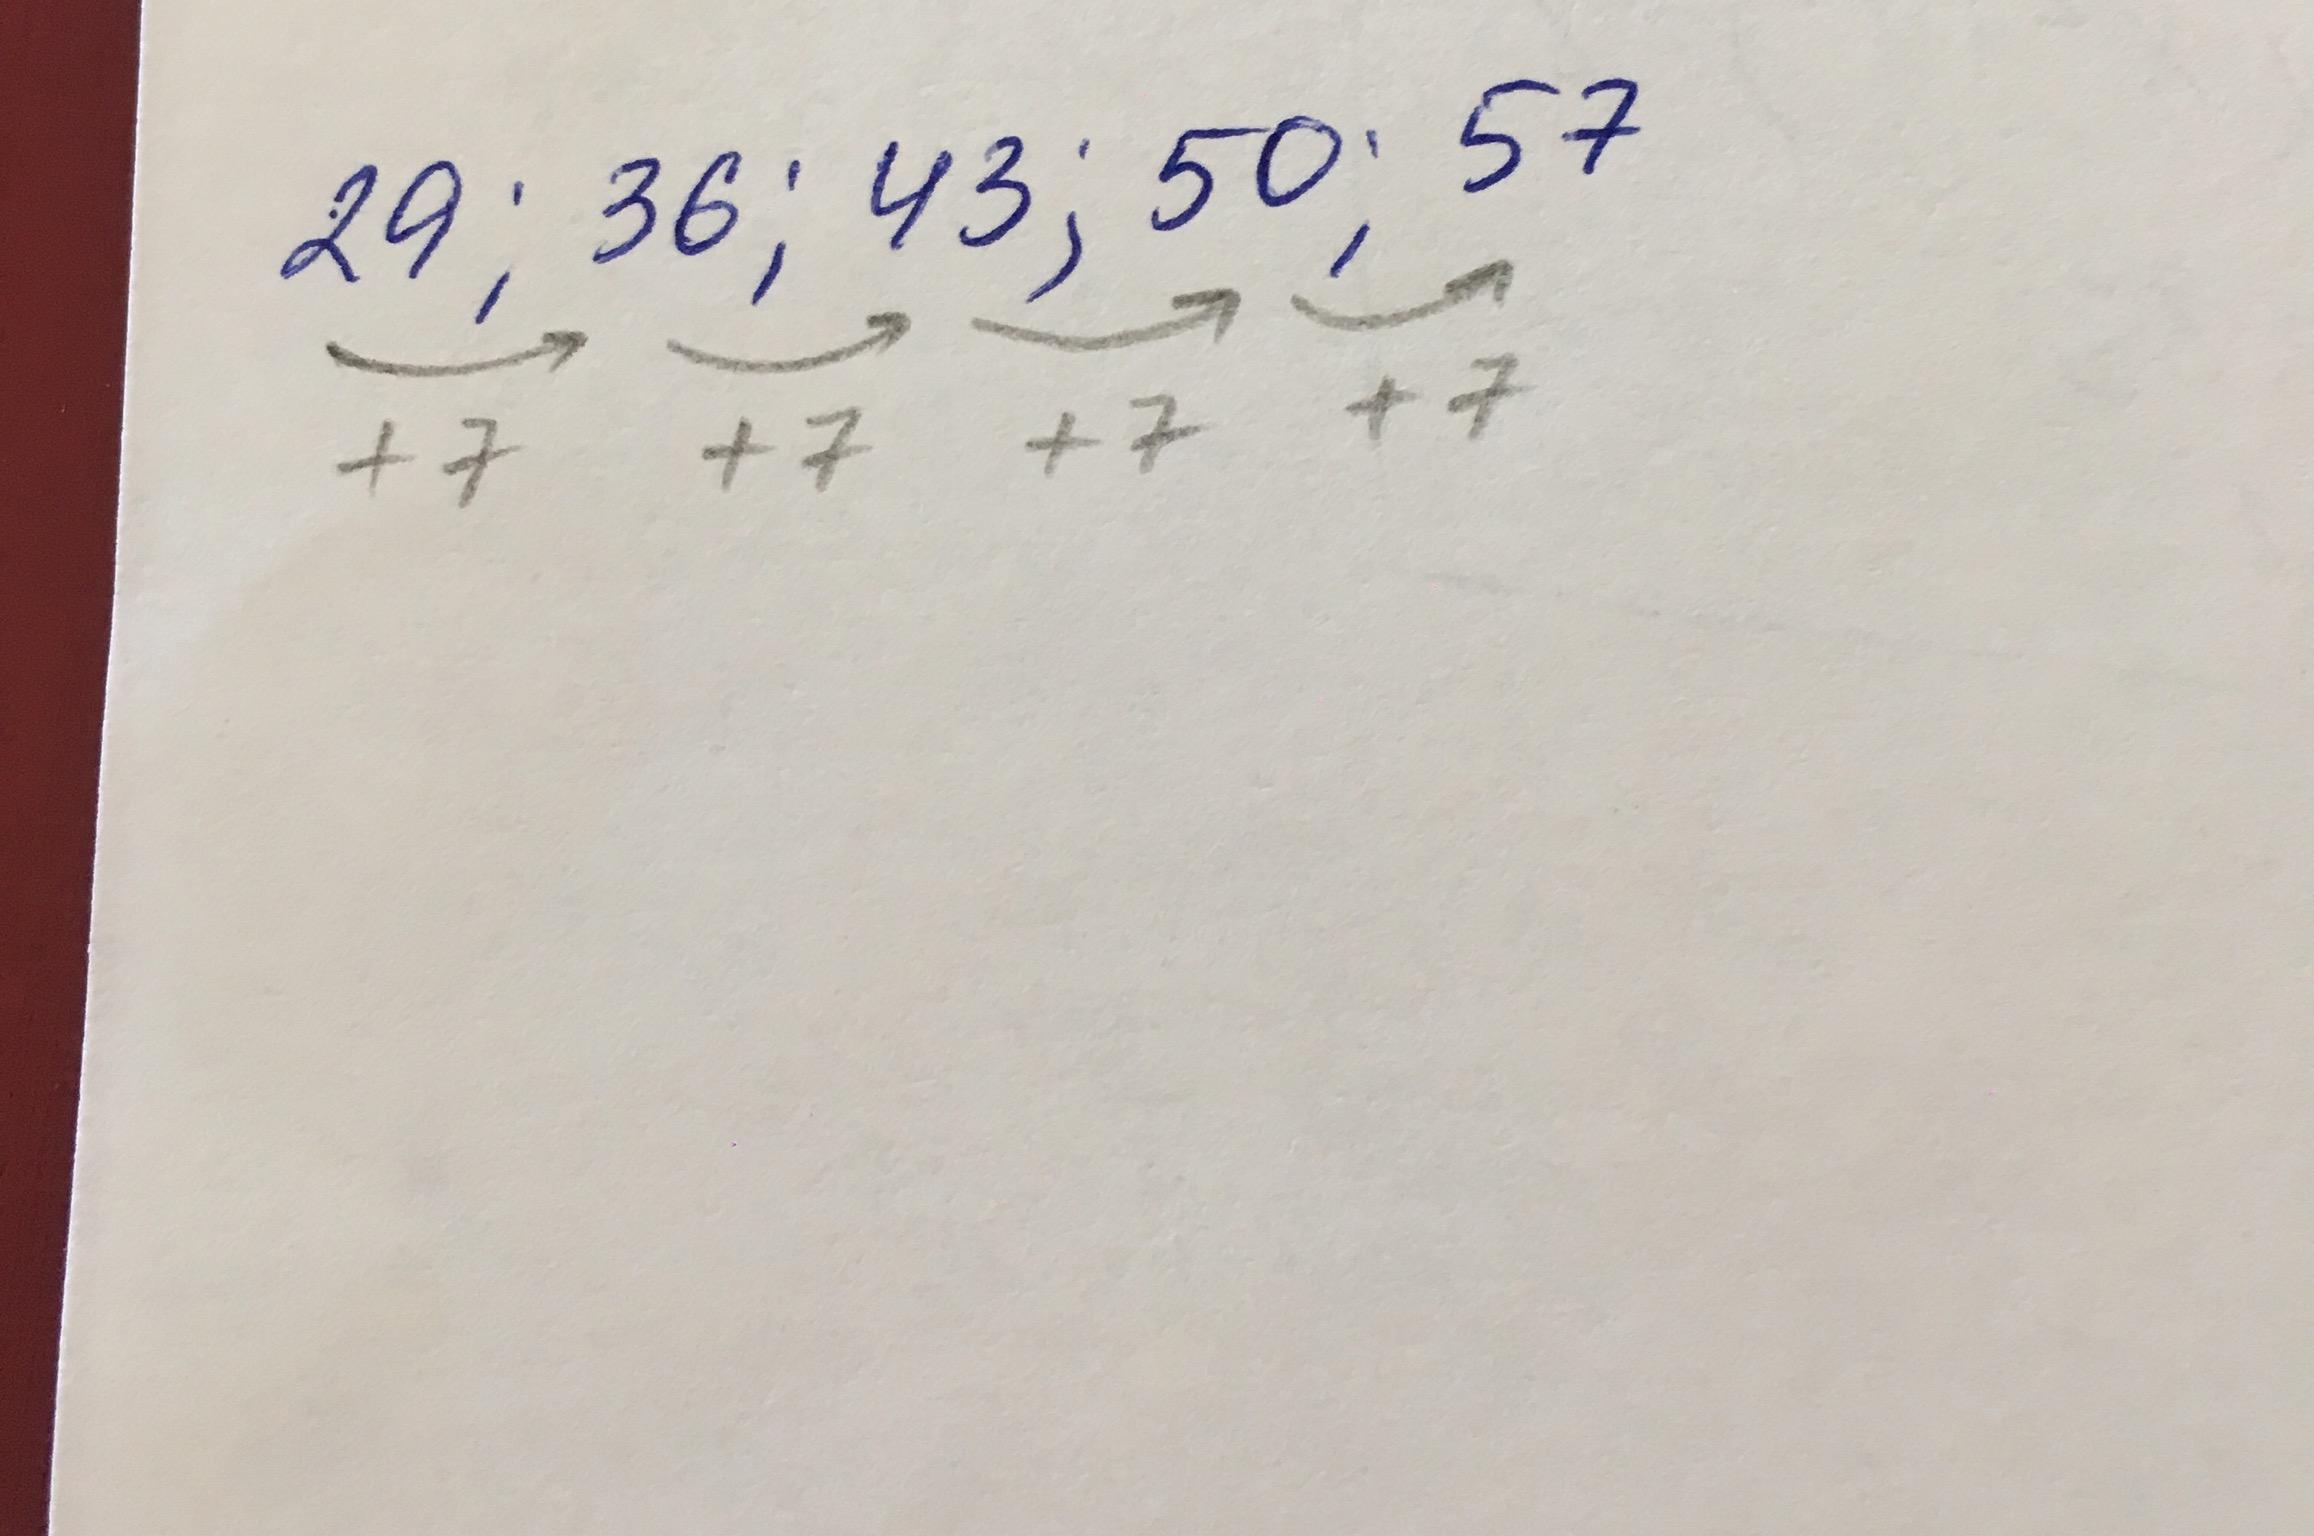 29; 36; 43; 50; 57
+7 +7 +7 +7